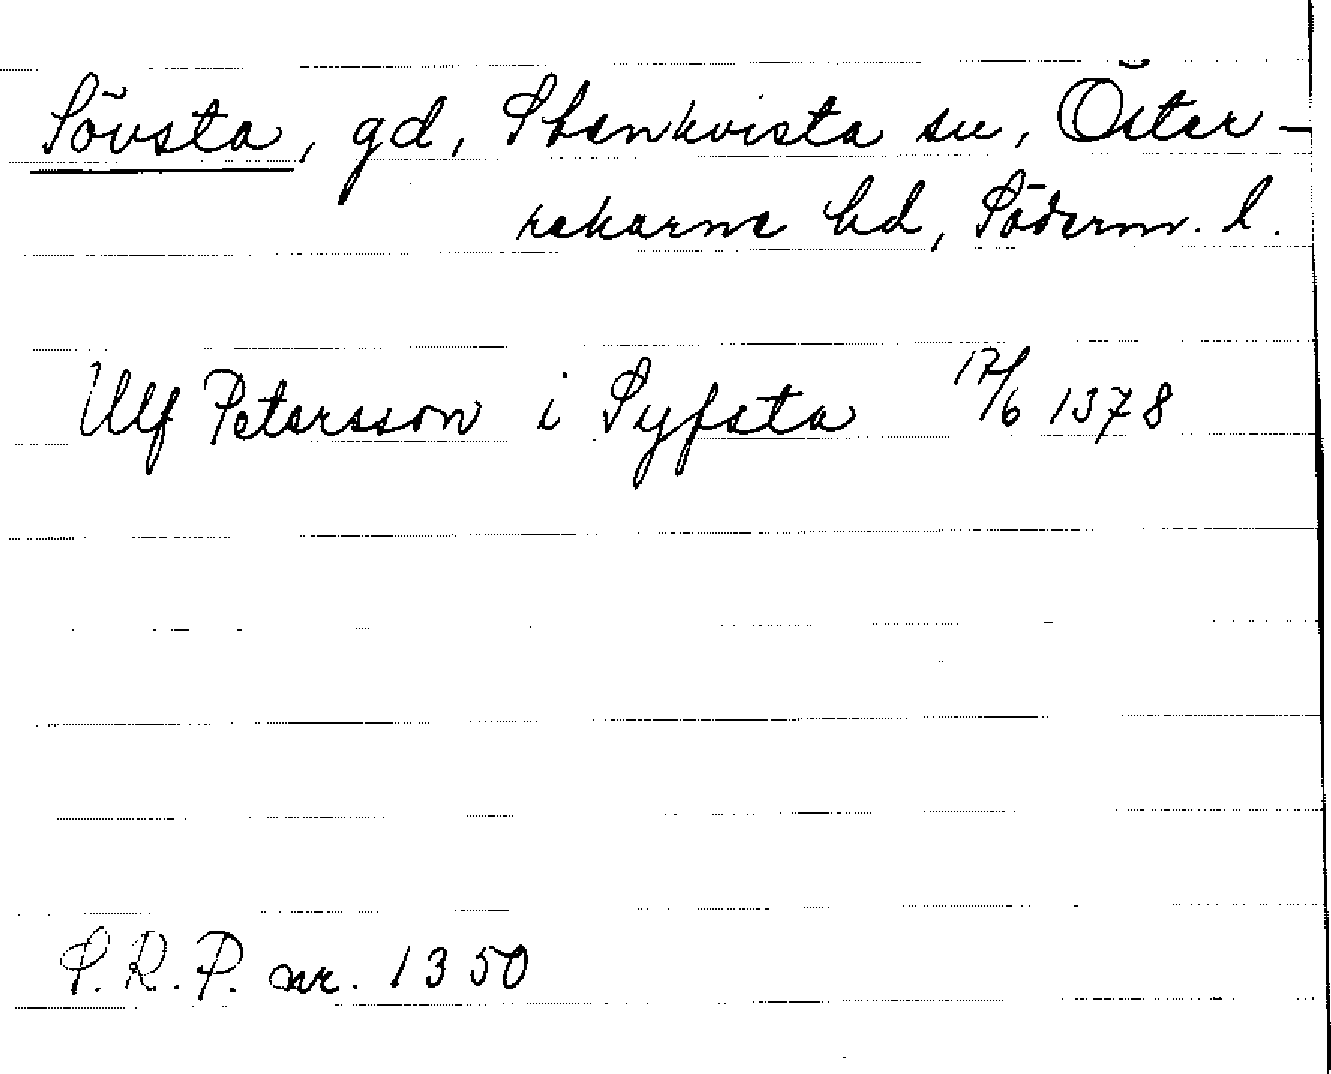 Sövsta, gd, Stenkvista sn, Öster-
rekarne hd, Söderm. l.
Ulf Petersson i Syfsta 17/6 1378
S.R.P. nr. 1350